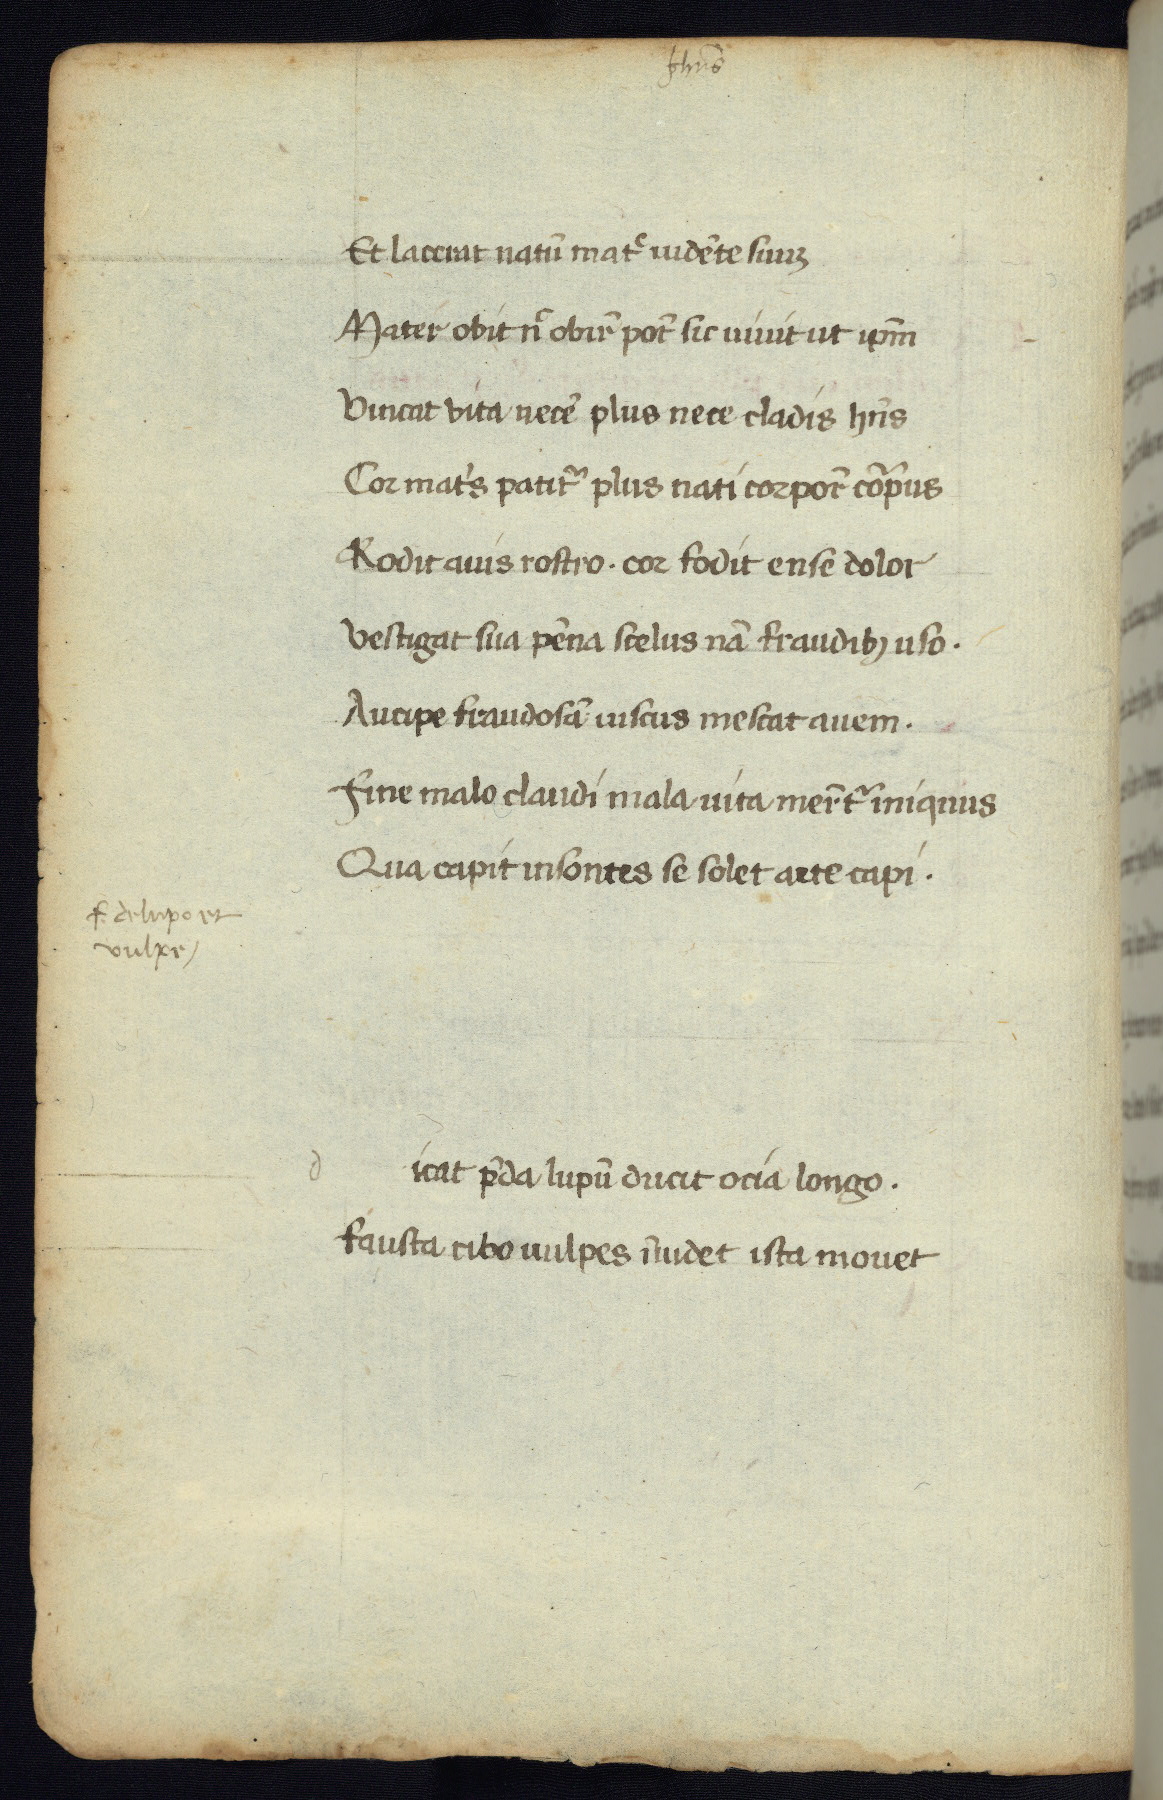 yhūs
Et lacerat natū matͬ uidēte suuꝫ
Mater obit nͨ obir̄ pot̄ sic uiuit ut ip̄m
Vincat vita necē plus nece cladis hn̄s
Cor mat's patitᷣ plus nati corpor̄ cōpus
Rodit auis rostro · cor fodit ense dolor
Vestigat sua pēna scelus nā fraudibꝫ uso ·
Aucipe fraudosā uiscus inescat auem ·
Fine malo claudi mala uita mer̄tᷣ iniquus
Qua capit insontes se solet arte capi ·
f. de lupo et
vulpe
d icat p̄da lupū ducit ocia longo ·
Fausta cibo uulpes īuidet ista mouet